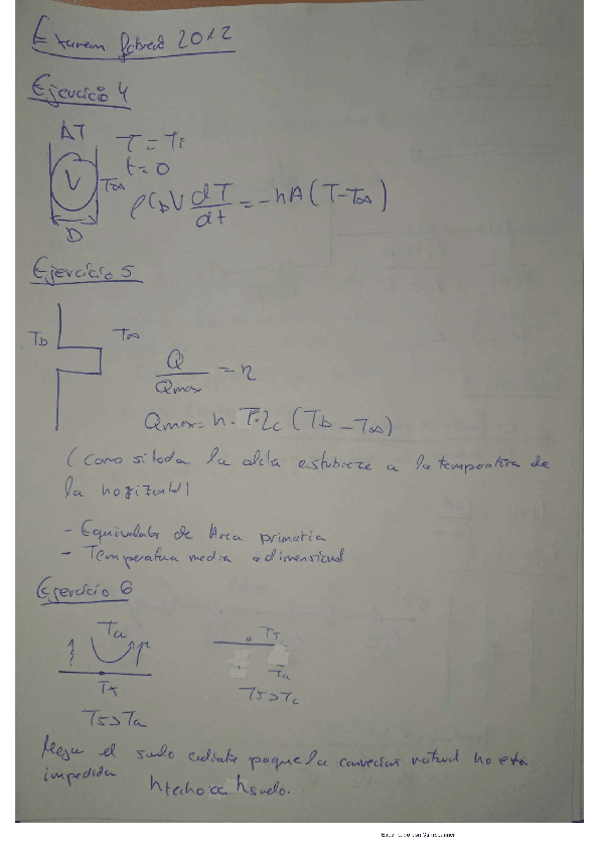 Examen febrero 2012
Ejercicio 4
ΔT
T = Ti
t = 0
V
T∞
ρCpV dT/dt = -hA(T-T∞)
D
Ejercicio 5
Tb
T∞
Q/Qmax = η
Qmax = h · (Tb - T∞)
(como si toda la aleta estubieze a la temperatura de
la
- Equivalate de Area primaria
- Temperatura media adimensional
Ejercicio 6
Ta
Ts
Ts
Ta
Ts>Ta
Ts>Ta
Mejor el suelo caliente poque la conveccion natural no está
impedida
htecho << hsuelo.